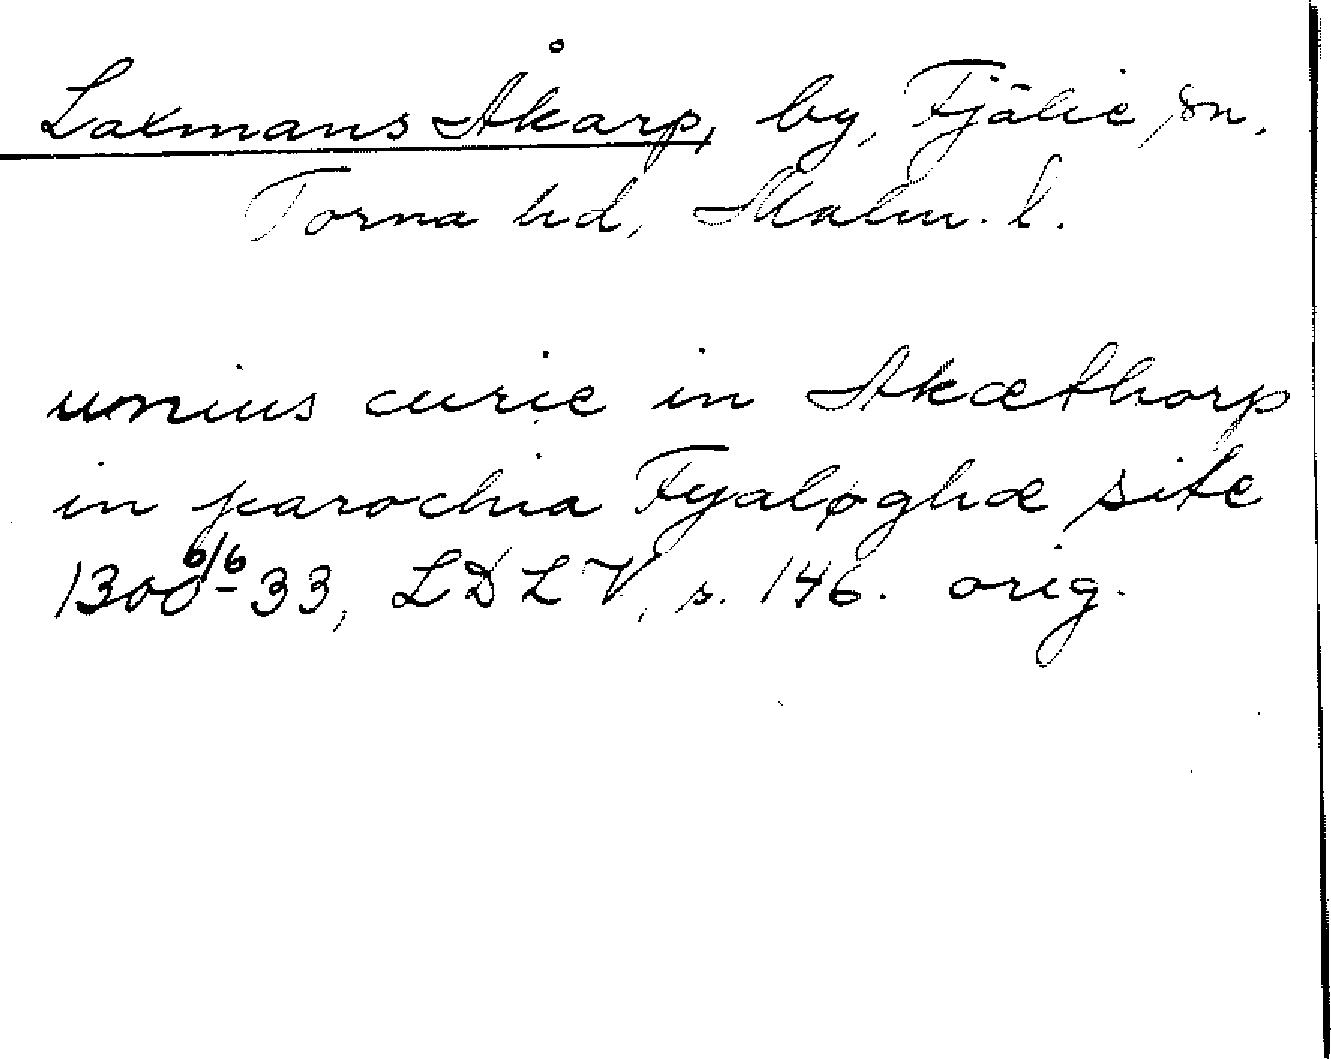 Laxmans Åkarp, by, Fjälie sn,
Torna hd, Malm. l.
unius curie in Akæthorp
in parochia Fyaløghæ site
1300 6/6-33, LDLV, s. 146. orig.